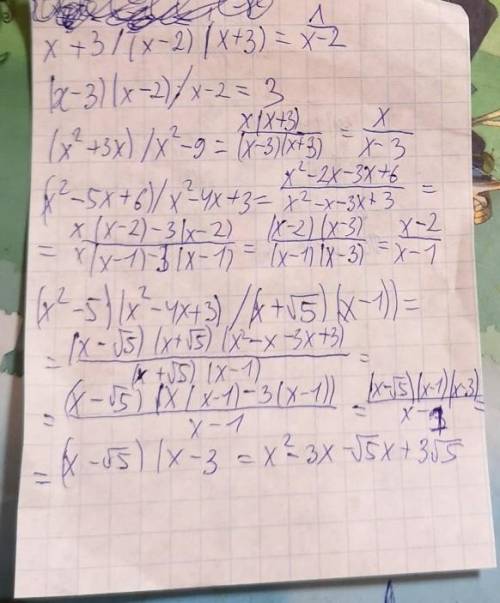 x + 3 / (x-2) (x+3) = 1/(x-2)
(x-3) (x-2) / x-2 = 3
(x² +3x) / x² - 9 = x(x+3)/((x-3)(x+3)) = x/(x-3)
(x² -5x+6) / x² -4x+3 = (x²-2x-3x+6)/(x²-x-3x+3) =
= (x(x-2)-3(x-2))/(x(x-1)-3(x-1)) = ((x-2)(x-3))/((x-1)(x-3)) = (x-2)/(x-1)
(x² -5) (x² -4x+3) / (x+√5) (x-1)) =
= ((x-√5) (x+√5) (x²-x-3x+3))/((x+√5) (x-1)) =
= ((x-√5) (x(x-1)-3(x-1)))/(x-1) = ((x-√5)(x-1)(x-3))/(x-1) =
= (x-√5) (x-3 = x²-3x-√5x+3√5